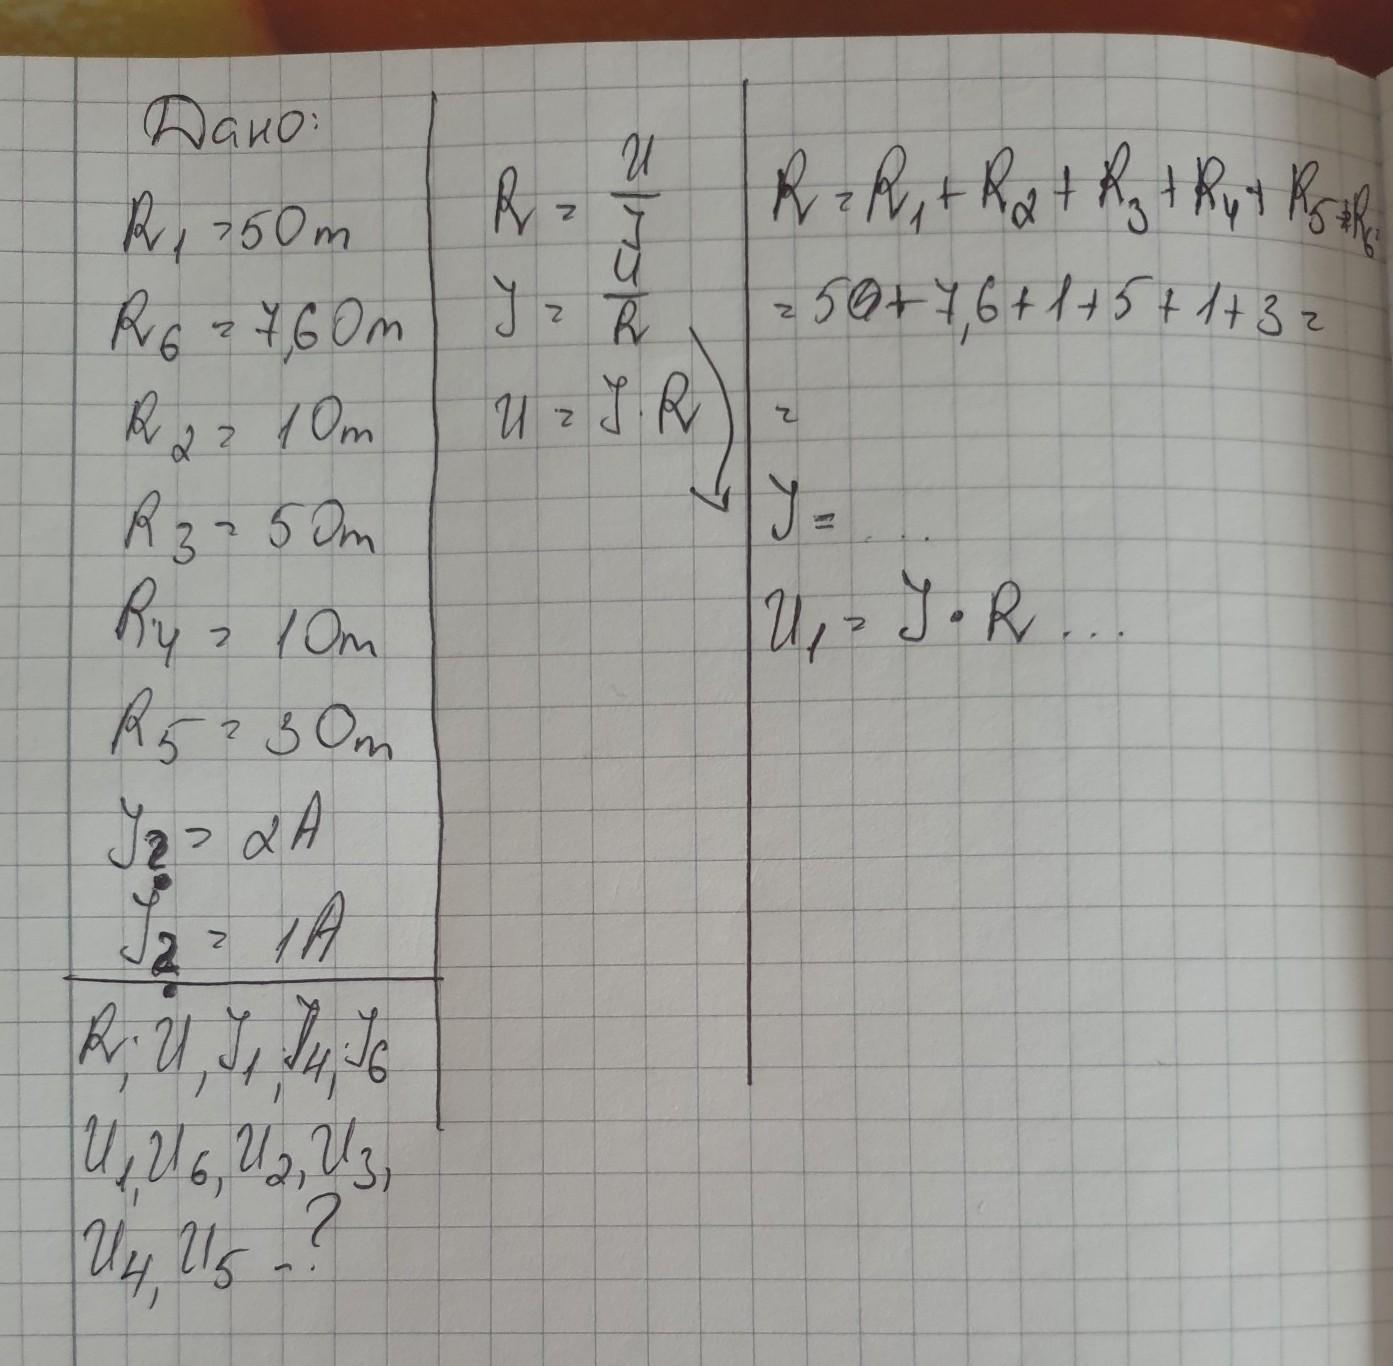 Дано:
R1 = 5 Om
R6 = 7,6 Om
R2 = 1 Om
R3 = 5 Om
R4 = 1 Om
R5 = 3 Om
J2 = 2A
J2 = 1A
R, U, J1, J4, J6
U1, U6, U2, U3,
U4, U5 - ?
R = U/J
J = U/R
U = J · R
R = R1 + R2 + R3 + R4 + R5 + R6 =
= 5 + 7,6 + 1 + 5 + 1 + 3 =
=
J = ....
U1 = J · R ...